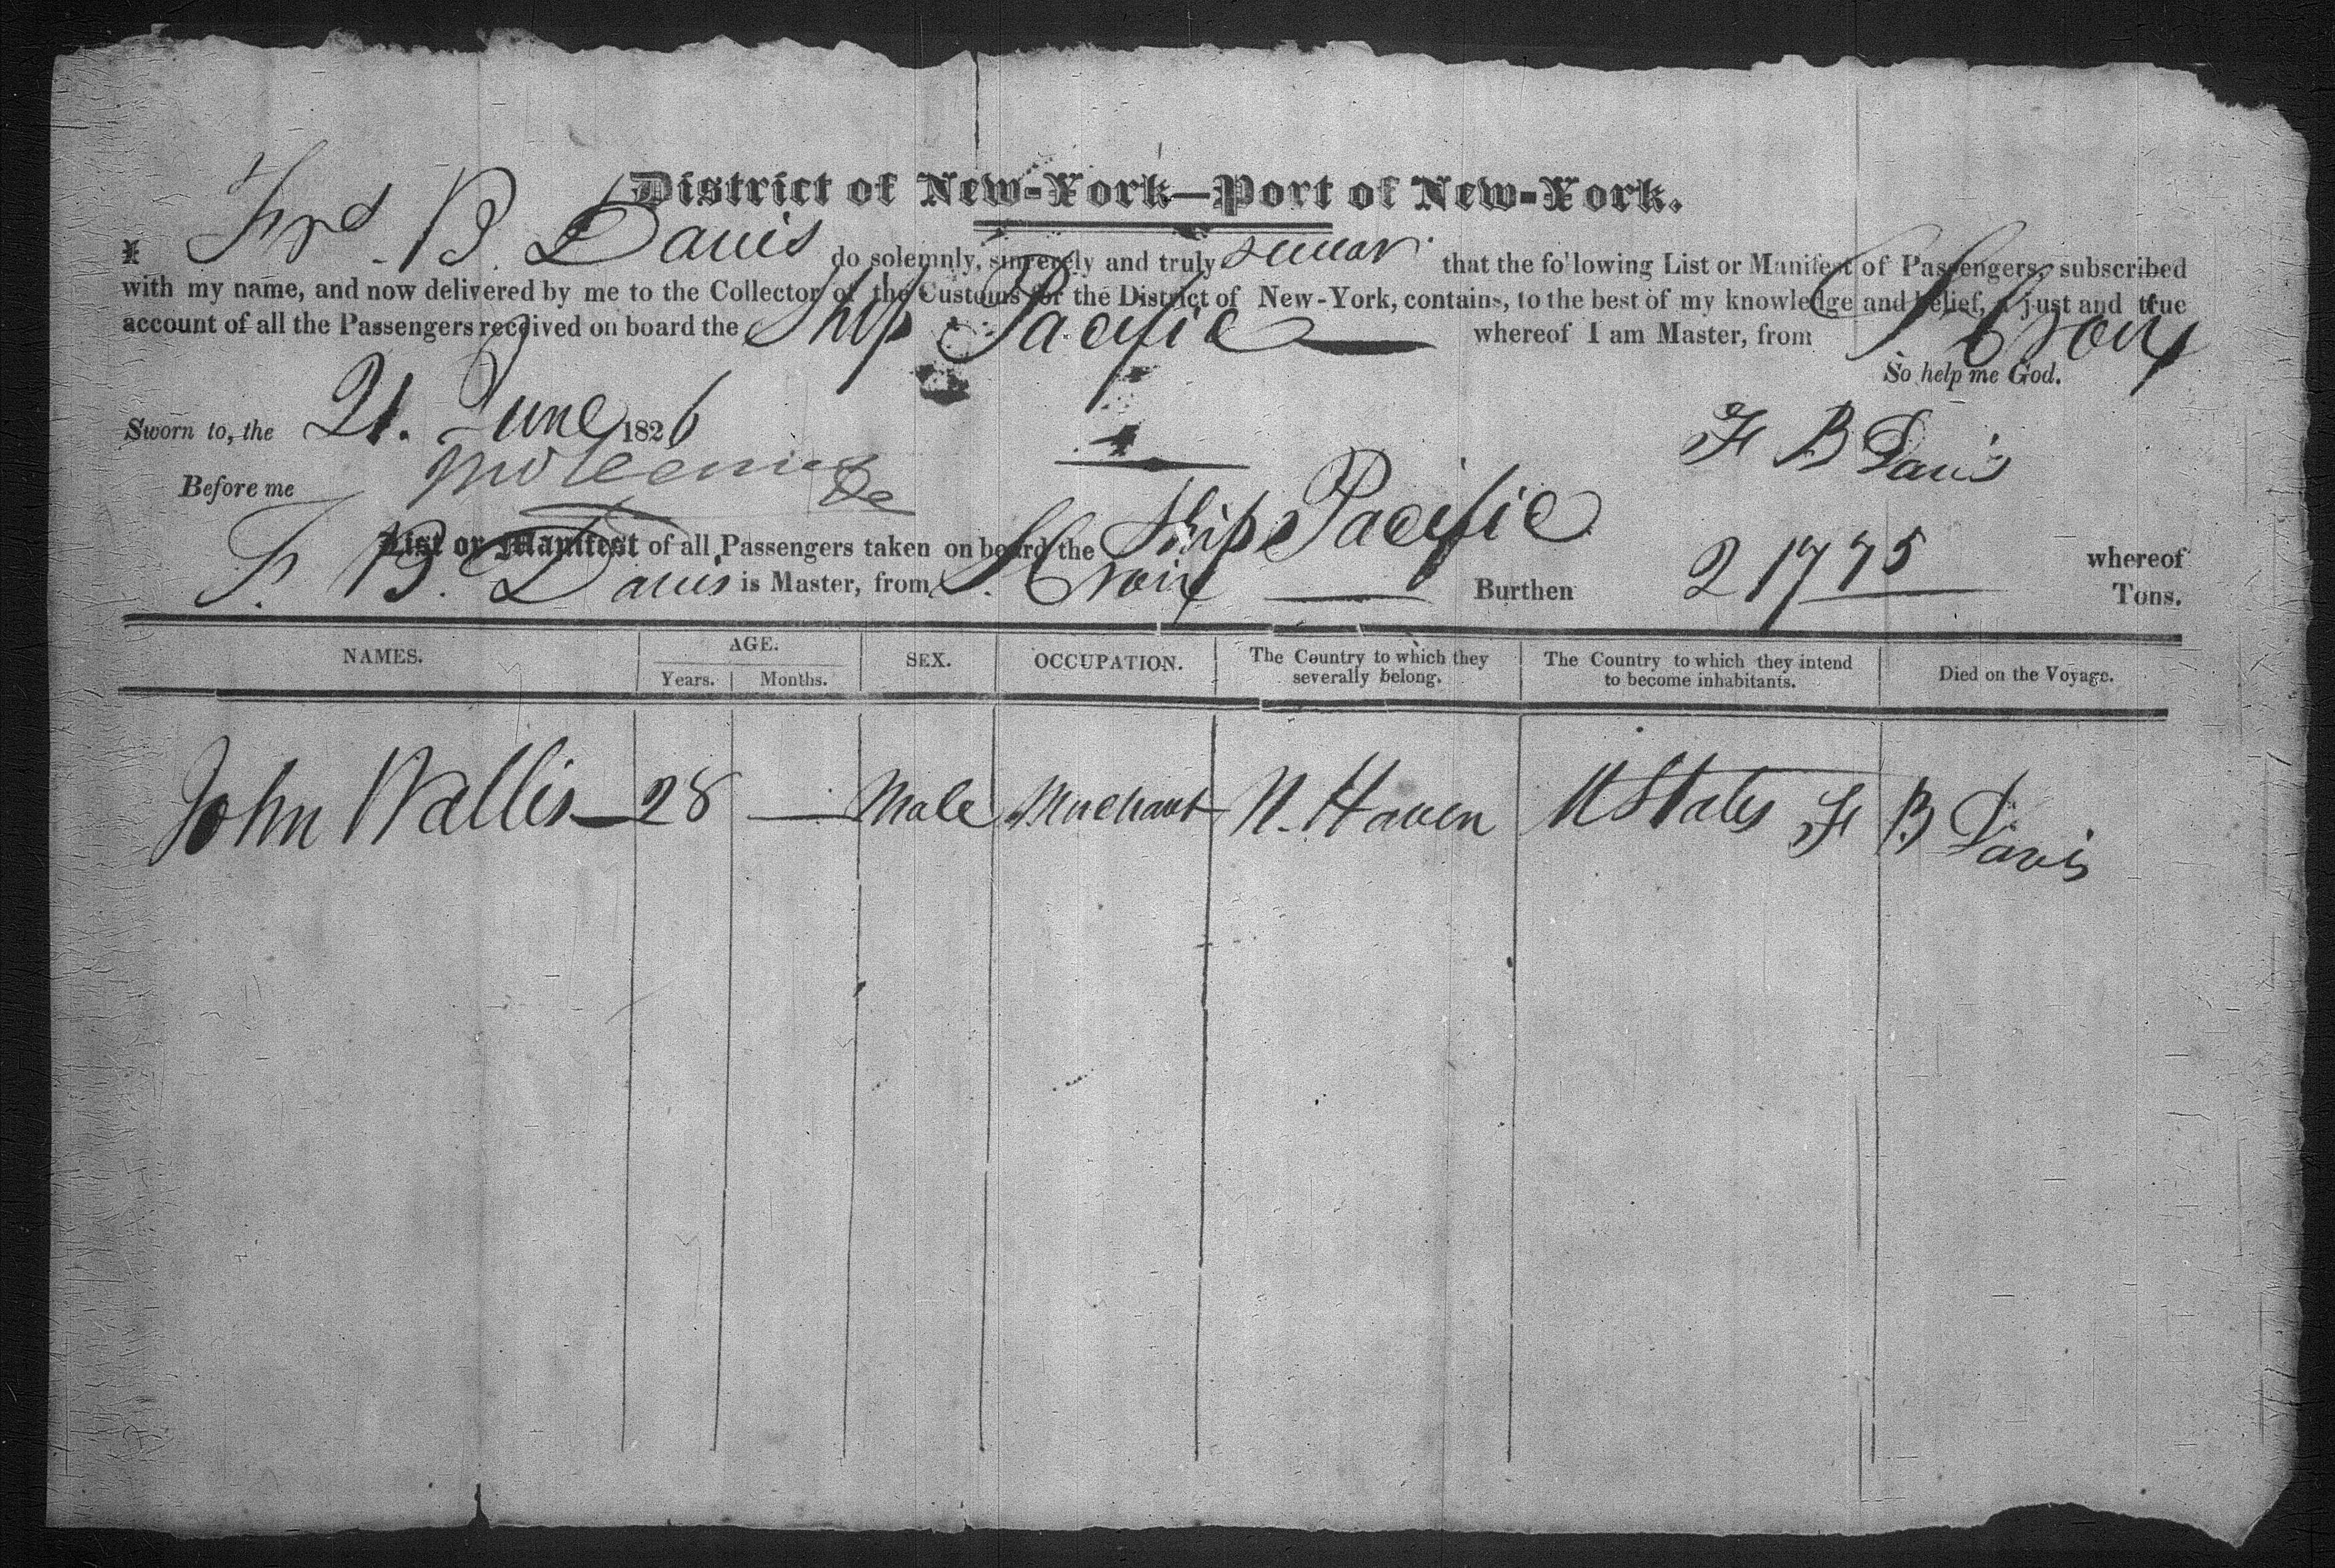 District of New-York—Port of New-York.
I Fred. B. Davis do solemnly, sincerely and truly swear that the following List or Manifest of Passengers, subscribed
with my name, and now delivered by me to the Collector of the Customs for the District of New-York, contains, to the best of my knowledge and belief, a just and true
account of all the Passengers received on board the Ship Pacific whereof I am Master, from St Croix
So help me God.
Sworn to, the 21. June 1826
F B Davis
Before me
List or Manifest of all Passengers taken on board the Ship Pacific whereof
F. B. Davis is Master, from St. Croix Burthen Tons.
NAMES. AGE. SEX. OCCUPATION. The Country to which they severally belong. The Country to which they intend to become inhabitants. Died on the Voyage.
Years. Months.
John Wallis 28 — Male Merchant N. Haven U States F B Davis